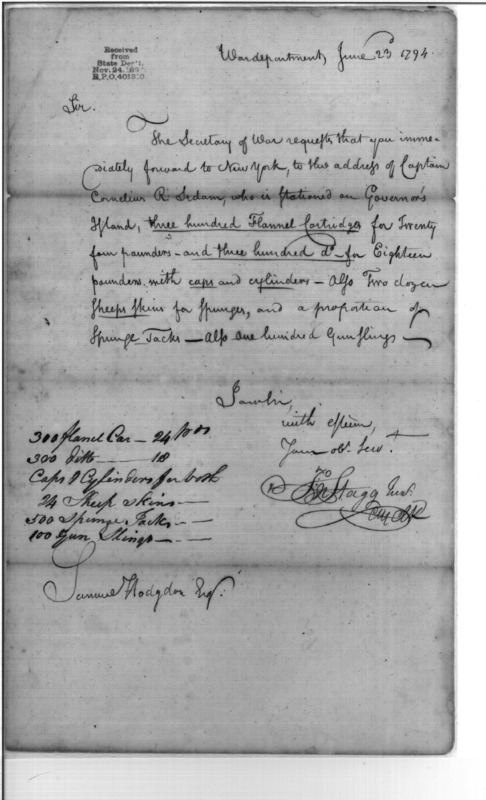 Received
from
State Dep't,
Nov. 24, 189
R.P.O. 401810.
War department, June 23d 1794.
Sir.
The Secretary of War requests that you imme-
diately forward to New York, to the address of Captain
Cornelius R. Sedam, who is stationed on Governor's
Island, three hundred Flannel Cartridges for Twenty
four pounders - and three hundred do. for Eighteen
pounders. with caps and cylinders - Also Two dozen
Sheeps skins for Spunges, and a proportion of
Spunge Tacks - Also one hundred Gun Slings -
I am Sir,
with esteem,
Your obt. Servt.
Jno Stagg Junr.
300 flanel Car - 24
300 ditto - 18
Caps & Cylinders for both
24 Sheep skins -
500 Spunge Tacks - -
100 Gun Slings - -
Samuel Hodgdon Esqr.